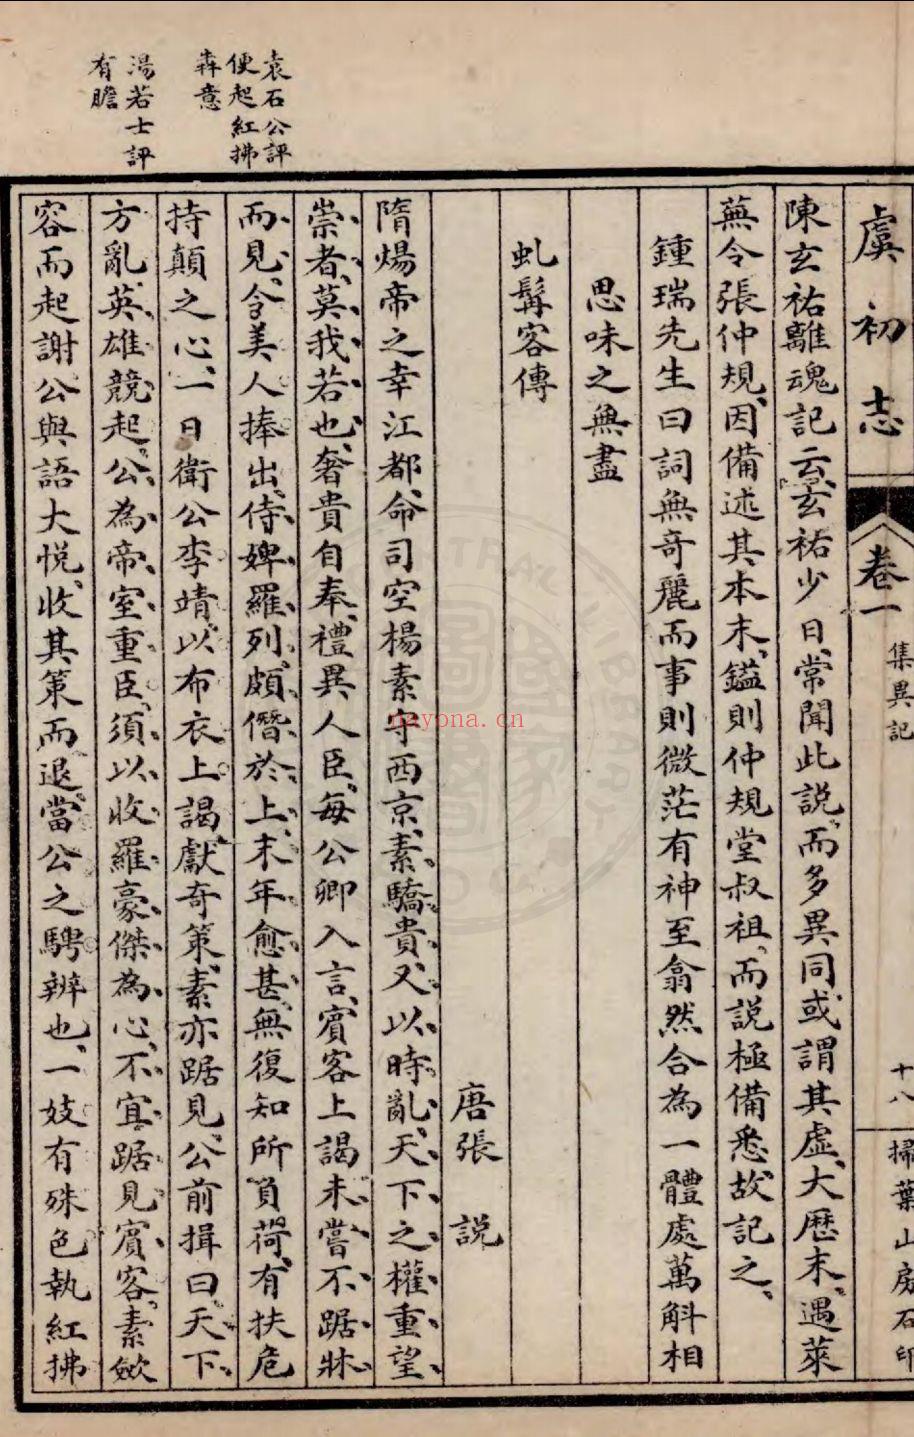 虞初志 卷一 集異記 十八 掃葉山房石印
陳玄祐離魂記云、玄祐少日、常聞此説、而多異同、或謂其虛、大歷末、遇萊
蕪令張仲規、因備述其本末、鎰則仲規堂叔祖、而説極備悉、故記之、
鍾瑞先生曰詞無奇麗而事則微茫有神至翕然合為一體處萬斛相
思味之無盡
虬髯客傳
唐張説
隋煬帝之幸江都、命司空楊素守西京、素驕貴、又以時亂、天下之權重望
崇者、莫我若也、奢貴自奉、禮異人臣、每公卿入言、賓客上謁、未嘗不踞牀
而見、令美人捧出、侍婢羅列、頗僭於上、末年愈甚、無復知所負荷、有扶危
持顛之心、一日衛公李靖、以布衣上謁、獻奇策、素亦踞見、公前揖曰、天下
方亂、英雄競起、公為帝室重臣、須以收羅豪傑為心、不宜踞見賓客、素斂
容而起謝公與語大悅、收其策而退、當公之騁辨也、一妓有殊色執紅拂
袁石公評
便起紅拂
犇意
湯若士評
有膽
nayona.cn